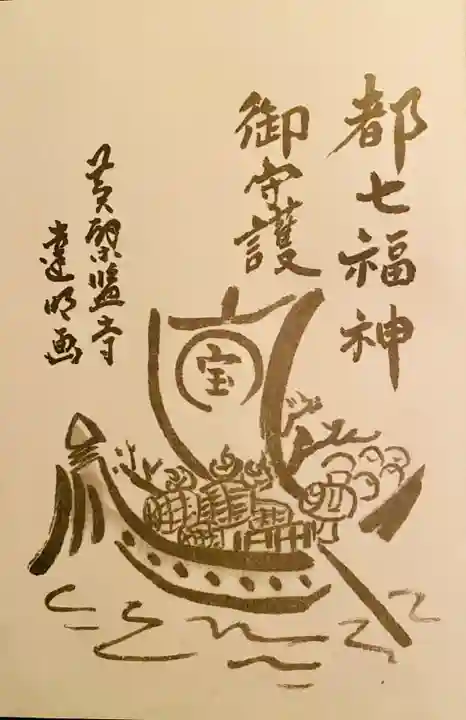 都七福神
御守護
宝
黄檗監寺
達明画